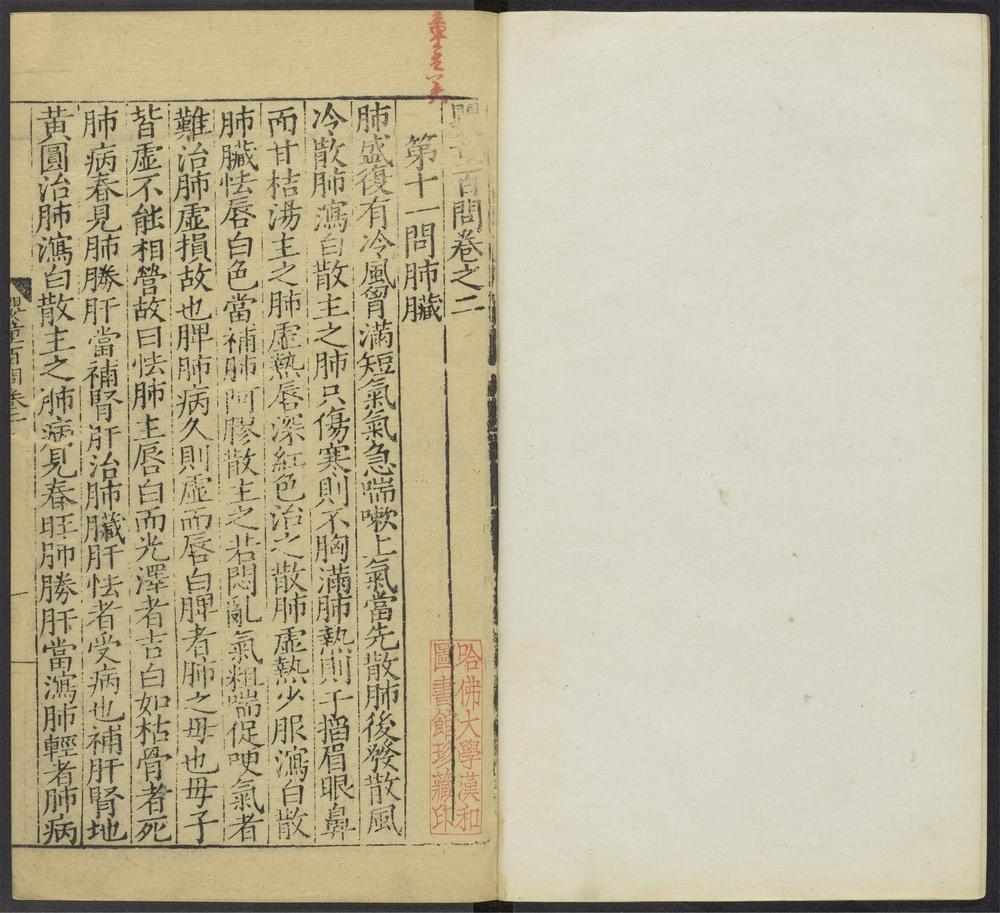 百問卷之二
第十一問肺臟
肺盛復有冷風胷滿短氣氣急喘嗽上氣當先散肺後發散風
冷散肺瀉白散主之肺只傷寒則不胸滿肺熱則手掐眉眼鼻
而甘桔湯主之肺虛熱唇深紅色治之散肺虛熱少服瀉白散
肺臟怯唇白色當補肺阿膠散主之若悶亂氣粗喘促哽氣者
難治肺虛損故也脾肺病久則虛而唇白脾者肺之母也母子
皆虛不能相營故曰怯肺主唇白而光澤者吉白如枯骨者死
肺病春見肺勝肝當補腎肝治肺臟肝怯者受病也補肝腎地
黃圓治肺瀉白散主之肺病見春旺肺勝肝當瀉肺輕者肺病
嬰童百問卷二
一
哈佛大學漢和
圖書館珍藏印